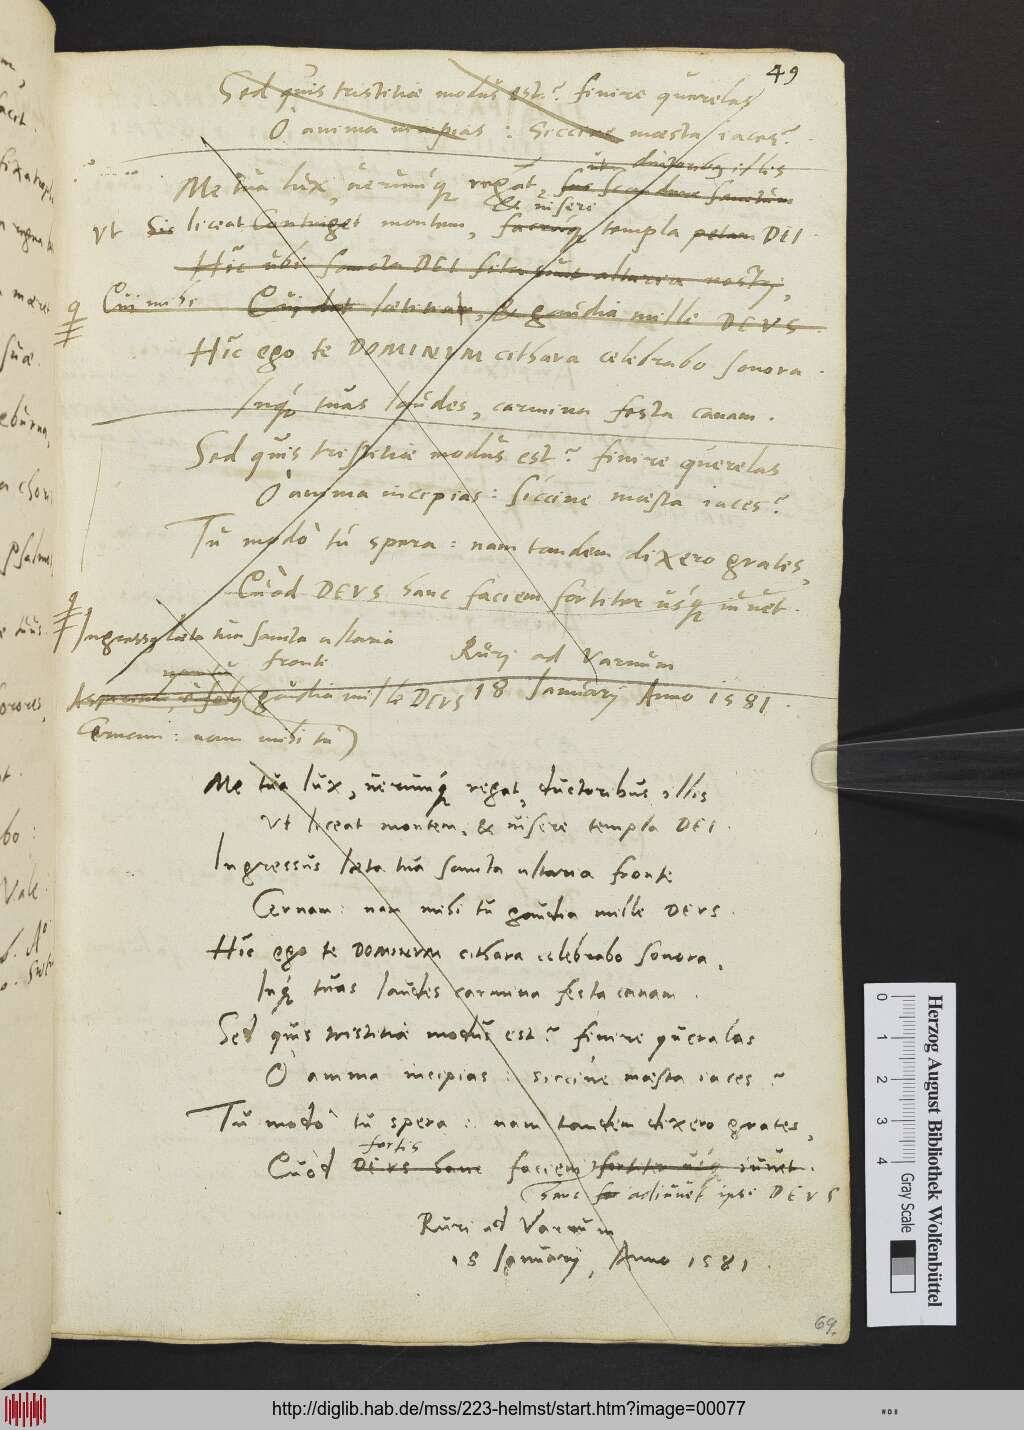 49
Sed quis tristitiæ modus est? finire querelas
O anima incipias : Siccine mæsta iaces?
ut ductoribus illis
Me tua lux, uerumq́ regat,
& uisere
Vt Sic liceat Contingere montem, sacraq́ templa petam DEI.
Hic ubi sancta DEI sita sunt altaria nostri,
Cui mihi Cui dat lætitiam, & gaudia mille DEVS.
Hic ego te DOMINVM cithara celebrabo sonora.
Inq́ tuas laudes, carmina festa canam.
Sed quis tristitiæ modus est? finire querelas
O anima incipias : siccine mæsta iaces?
Tu modò tú spera : nam tandem dixero grates,
Cuòd DEVS hanc faciem fortiter usq́ iuuet.
Ingressus læta tua sancta altaria
fronte
Ruri ad Varnum
gaudia mille DEVS
18 Ianuarij Anno 1581.
Cernam : nam mihi tu)
Me tua lux, uerumq́ regat, ductoribus illis
Vt liceat montem, & uisere templa DEI.
Ingressus læta tua sancta altaria fronte
Cernam : nam mihi tu gaudia mille DEVS.
Hic ego te DOMINVM cithara celebrabo sonora,
Inq́ tuas laudes carmina festa canam.
Sed quis tristitiæ modus est? finire querelas
O anima incipias : siccine mæsta iaces?
Tu modò tu spera : nam tandem dixero grates,
fortis
Cuòd DEVS hanc faciem fortiter usq́ iuuet.
hanc adiuuet ipse DEVS
Ruri ad Varnum
18 Ianuarij, Anno 1581.
69.
Herzog August Bibliothek Wolfenbüttel
0 1 2 3 4
Gray Scale
http://diglib.hab.de/mss/223-helmst/start.htm?image=00077